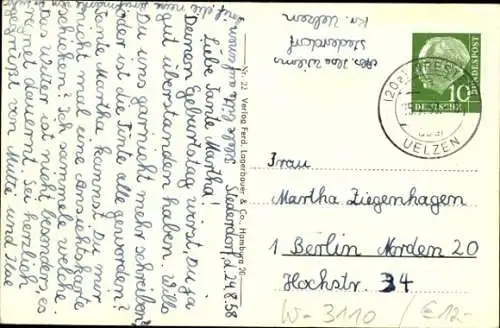 Abs. Ilse Wilems
Stederdorf
Kr. Uelzen
Stederdorf, d. 24.8.58
Liebe Tante Martha!
Deinen Geburtstag wirst Du ja
gut überstanden haben. Willst
Du uns garnicht mehr schreiben,
oder ist die Tinte alle geworden?
Tante Martha, kannst Du mir
nicht mal eine Ansichtskarte
schicken? Ich sammele welche.
Das Wetter ist nicht besonders, es
regnet dauernd. Sei herzlich
gegrüßt von Mutti und Ilse
Nr. 22 Verlag Ferd. Lagerbauer & Co., Hamburg 20
DEUTSCHE BUNDESPOST
10
(20a)
UELZEN
Frau
Martha Ziegenhagen
1 Berlin Norden 20
Hochstr. 34
W-3110
€12-